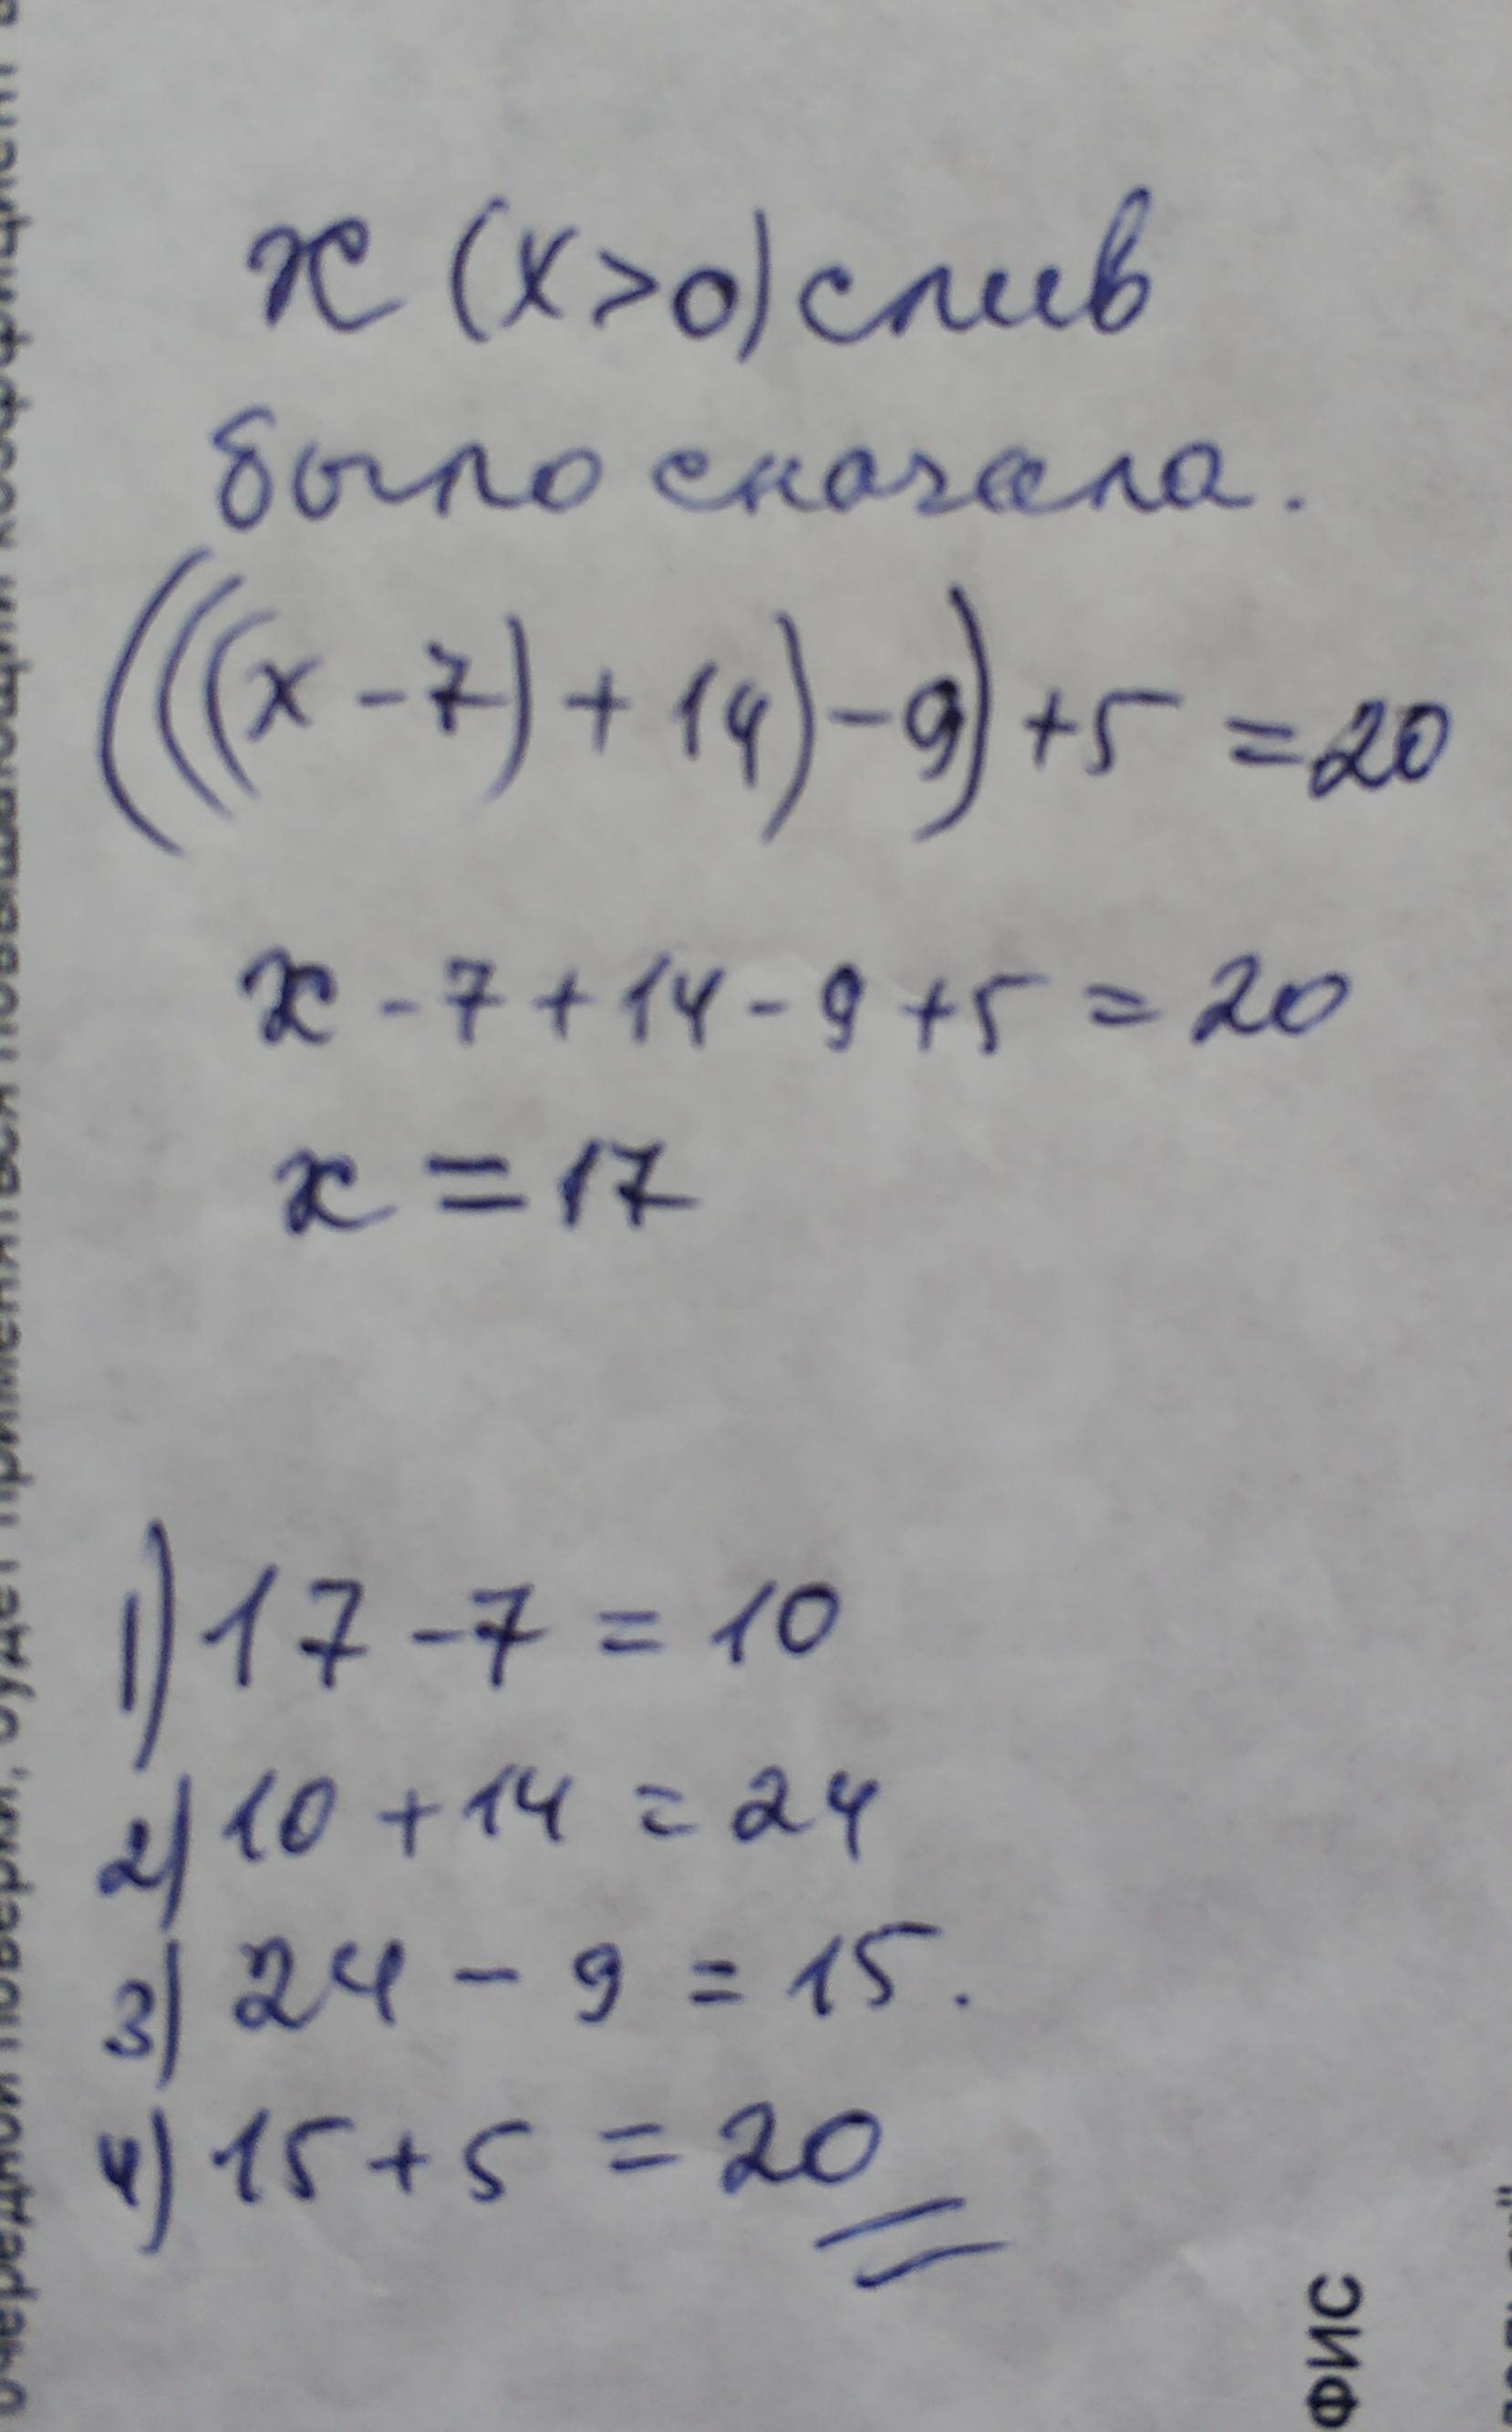 x (x>0) слив
было сначала.
(((x-7)+14)-9)+5=20
x-7+14-9+5=20
x=17
1) 17-7=10
2) 10+14=24
3) 24-9=15.
4) 15+5=20
ФИС